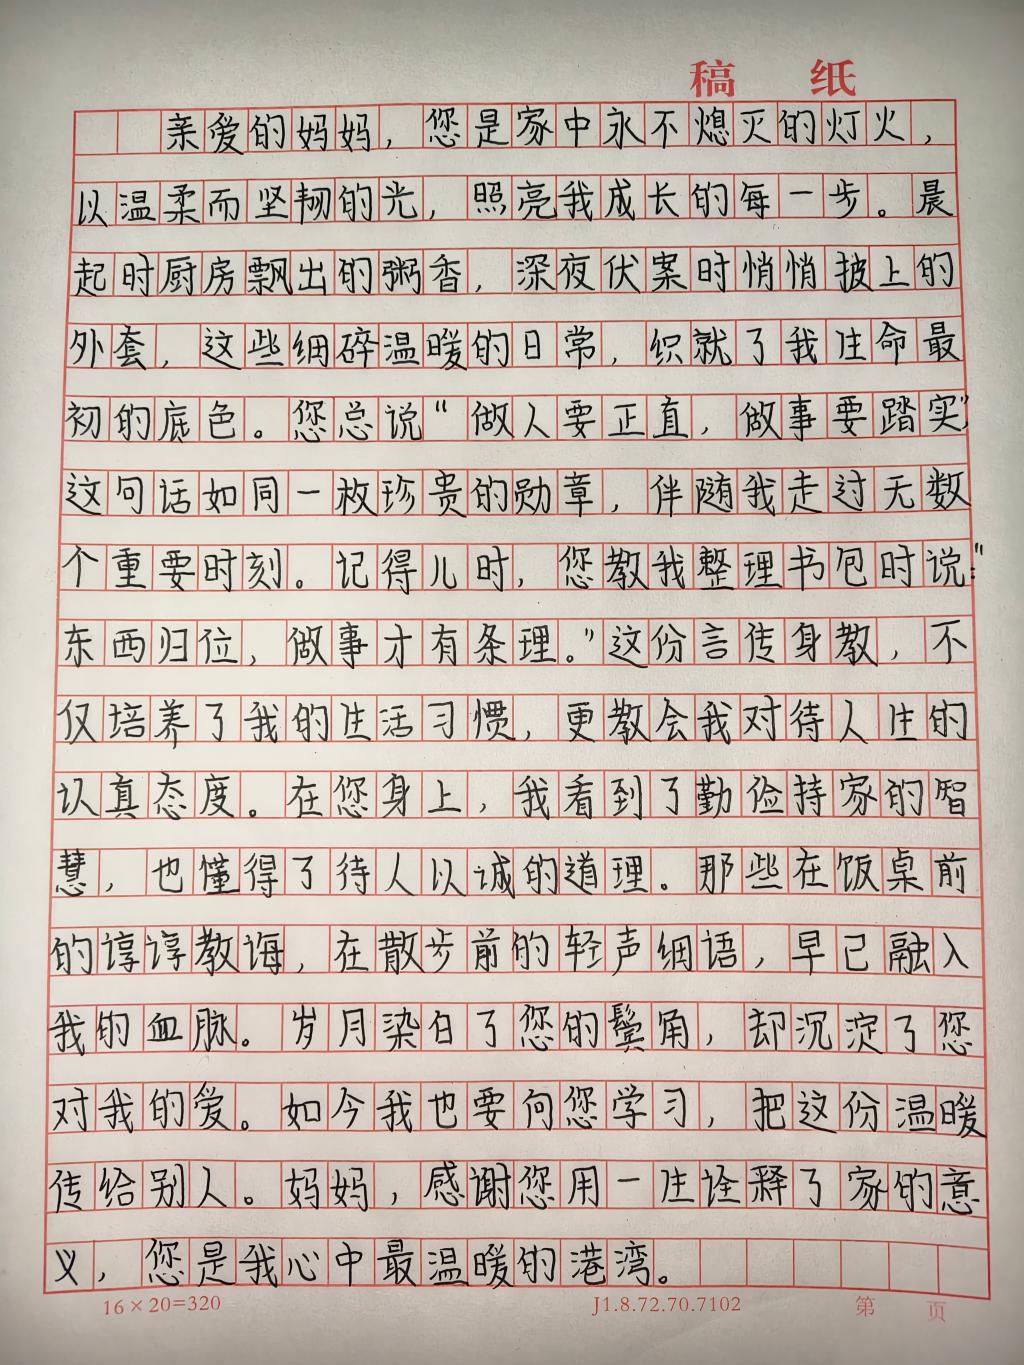 稿 纸
亲爱的妈妈，您是家中永不熄灭的灯火，
以温柔而坚韧的光，照亮我成长的每一步。晨
起时厨房飘出的粥香，深夜伏案时悄悄披上的
外套，这些细碎温暖的日常，织就了我生命最
初的底色。您总说“做人要正直，做事要踏实”
这句话如同一枚珍贵的勋章，伴随我走过无数
个重要时刻。记得儿时，您教我整理书包时说：“
东西归位，做事才有条理。”这份言传身教，不
仅培养了我的生活习惯，更教会我对待人生的
认真态度。在您身上，我看到了勤俭持家的智
慧，也懂得了待人以诚的道理。那些在饭桌前
的谆谆教诲，在散步前的轻声细语，早已融入
我的血脉。岁月染白了您的鬓角，却沉淀了您
对我的爱。如今我也要向您学习，把这份温暖
传给别人。妈妈，感谢您用一生诠释了家的意
义，您是我心中最温暖的港湾。
16×20=320 J1.8.72.70.7102 第 页